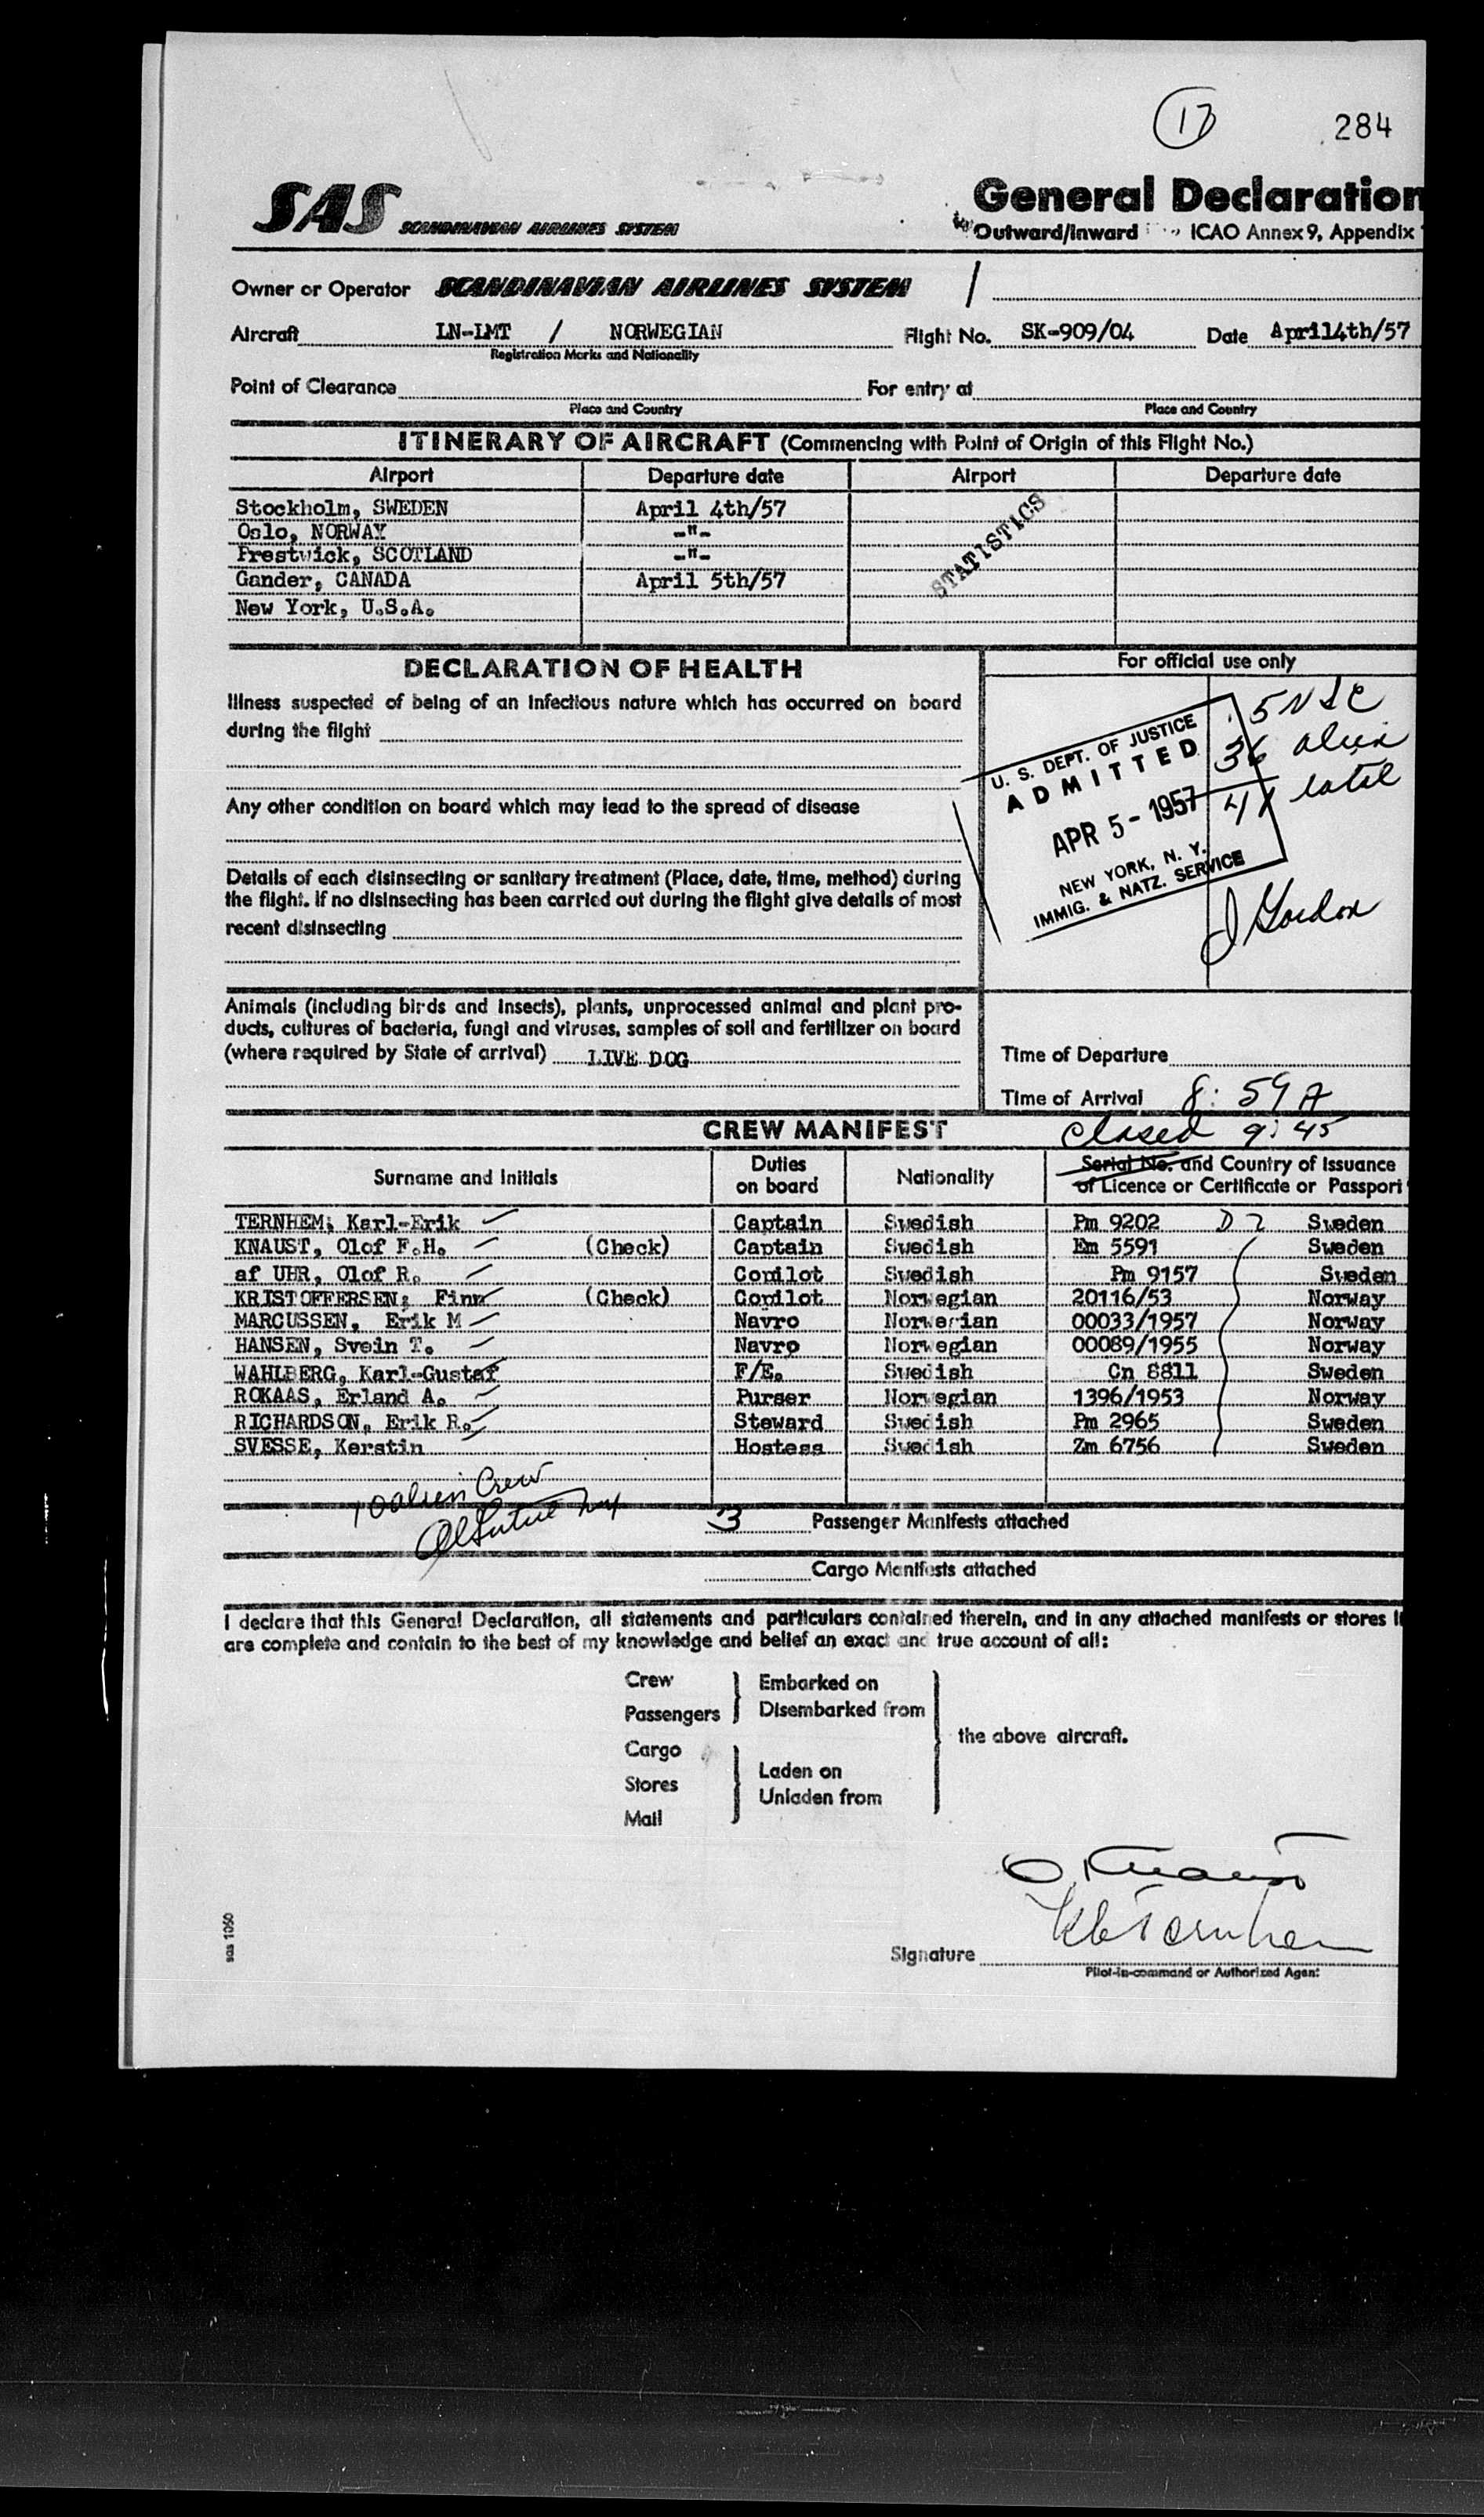 17
284
SAS SCANDINAVIAN AIRLINES SYSTEM
General Declaration
Outward/Inward ICAO Annex 9, Appendix
Owner or Operator SCANDINAVIAN AIRLINES SYSTEM /
Aircraft LN-LMT / NORWEGIAN Flight No. SK-909/04 Date April4th/57
Registration Marks and Nationality
Point of Clearance For entry at
Place and Country Place and Country
ITINERARY OF AIRCRAFT (Commencing with Point of Origin of this Flight No.)
Airport Departure date Airport Departure date
Stockholm, SWEDEN April 4th/57
Oslo, NORWAY -"-
Prestwick, SCOTLAND -"-
Gander, CANADA April 5th/57
New York, U.S.A.
STATISTICS
DECLARATION OF HEALTH
Illness suspected of being of an infectious nature which has occurred on board
during the flight
Any other condition on board which may lead to the spread of disease
Details of each disinsecting or sanitary treatment (Place, date, time, method) during
the flight. If no disinsecting has been carried out during the flight give details of most
recent disinsecting
For official use only
5 USC
36 alien
41 total
U. S. DEPT. OF JUSTICE
ADMITTED
APR 5 - 1957
NEW YORK, N. Y.
IMMIG. & NATZ. SERVICE
J Gordon
Animals (including birds and insects), plants, unprocessed animal and plant pro-
ducts, cultures of bacteria, fungi and viruses, samples of soil and fertilizer on board
(where required by State of arrival) LIVE DOG
Time of Departure
Time of Arrival 8:59 A
closed 9:45
CREW MANIFEST
Surname and Initials Duties on board Nationality Serial No. and Country of Issuance
of Licence or Certificate or Passport
TERNHEM, Karl-Erik Captain Swedish Pm 9202 D 2 Sweden
KNAUST, Olof F.H. (Check) Captain Swedish Em 5591 Sweden
af UHR, Olof R. Copilot Swedish Pm 9157 Sweden
KRISTOFFERSEN, Finn (Check) Copilot Norwegian 20116/53 Norway
MARCUSSEN, Erik M Navro Norwegian 00033/1957 Norway
HANSEN, Svein T. Navro Norwegian 00089/1955 Norway
WAHLBERG, Karl-Gustaf F/E. Swedish Cn 8811 Sweden
ROKAAS, Erland A. Purser Norwegian 1396/1953 Norway
RICHARDSON, Erik R. Steward Swedish Pm 2965 Sweden
SVESSE, Kerstin Hostess Swedish Zm 6756 Sweden
10 alien Crew
3 Passenger Manifests attached
Cargo Manifests attached
I declare that this General Declaration, all statements and particulars contained therein, and in any attached manifests or stores li
are complete and contain to the best of my knowledge and belief an exact and true account of all:
Crew
Passengers
Embarked on
Disembarked from
Cargo
Stores
Mail
Laden on
Unladen from
the above aircraft.
O. Knaust
KE Ternhem
Signature
Pilot-in-command or Authorized Agent
sas 1050